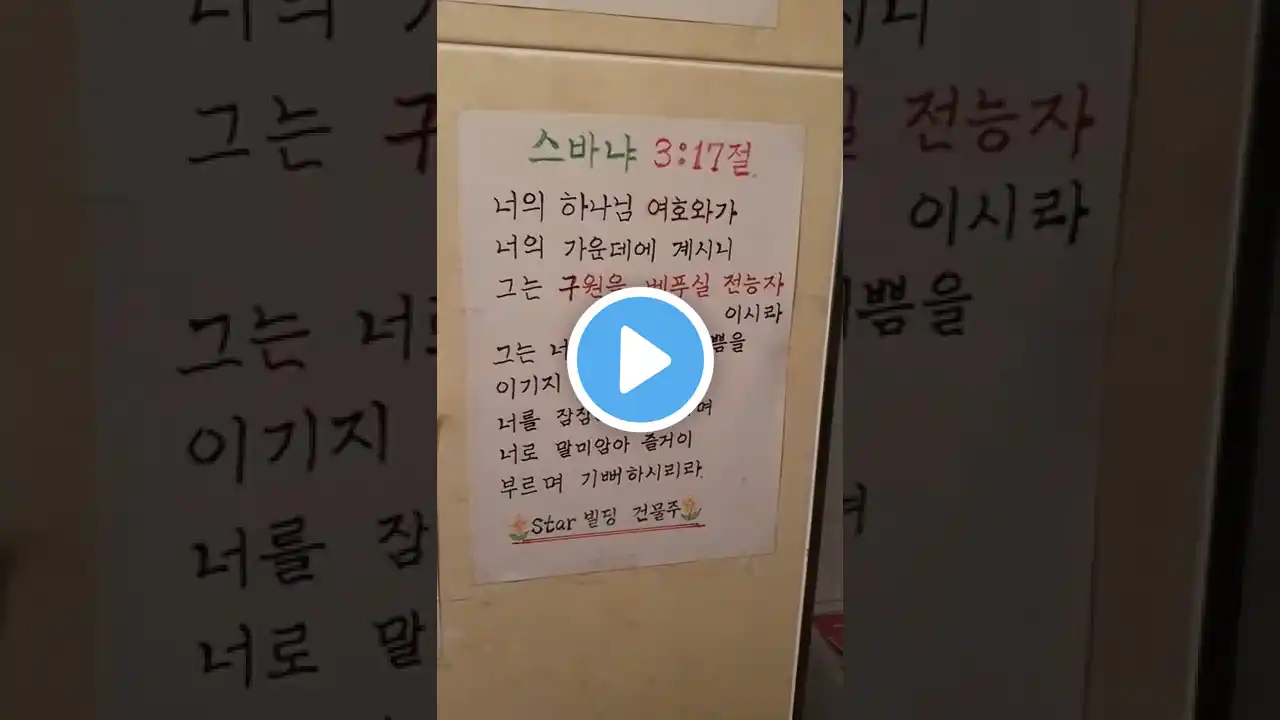 스바냐 3:17절
너의 하나님 여호와가
너의 가운데에 계시니
그는 구원을 베푸실 전능자
이시라
그는
이기지
너를
너로 말미암아 즐거이
부르며 기뻐하시리라.
Star 빌딩 건물주